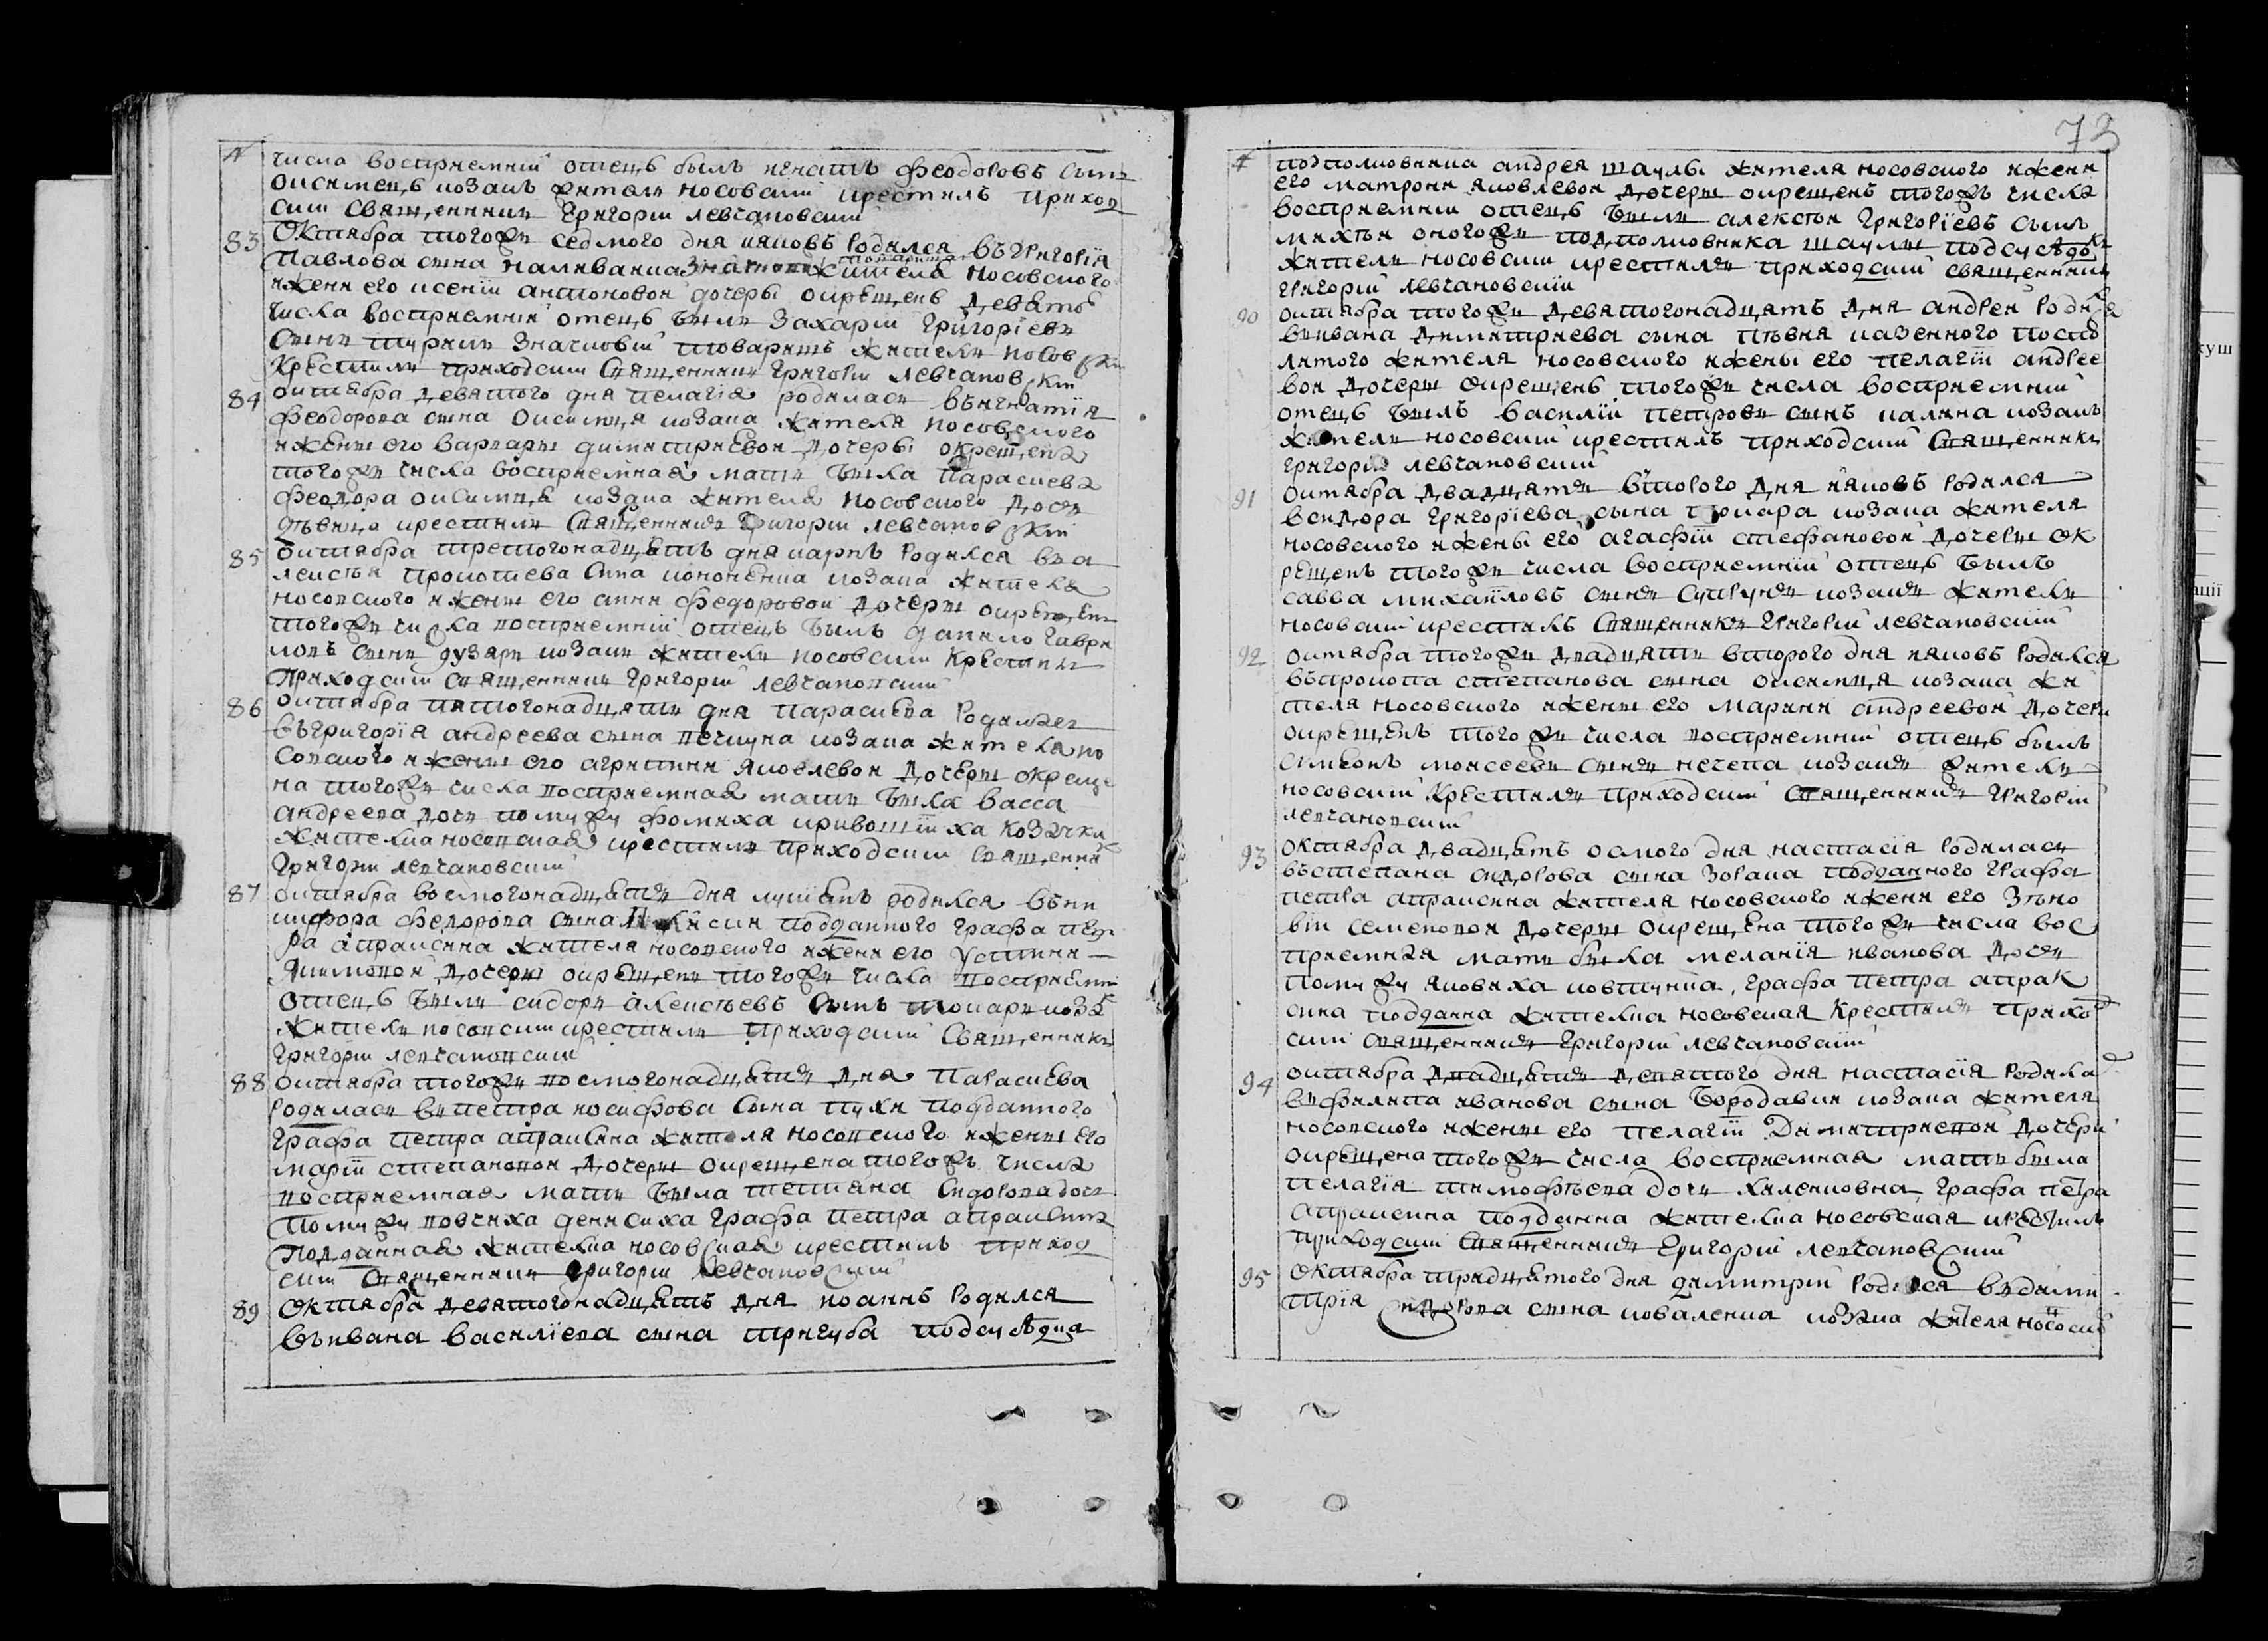 числа восприемнїй отецъ былъ игнатъ феодоровъ сынъ
оксимецъ козакъ житель носовскїй крестилъ приход
скїй священникъ григорїй левчановскїй
83 Октября тогожъ седмого дня иаковъ родился въ григорїя
павлова сына наливайка товариша жителя носовского
и жени его ксенїи антоновой дочеры окрещенъ девято
числа восприемнїй отецъ былъ захарїй григорїевъ
сынъ значковїй товаришъ житель носовскїй
крестилъ приходскїй священникъ григорїй левчановскїй
84 октября девятого дня пелагїя родилась въ игнатїя
феодорова сына оксимця козака жителя носовского
и жены его варвары димитриевой дочеры окрещена
тогожъ числа восприемная мати была параскева
феодора оксимця козака жителя носовского дочь
дѣвица крестилъ священникъ григорїй левчановскїй
85 октября третогонадцять дня карпъ родился въ а
лексѣя прокопиева сина кононенка козака жителя
носовского и жены его анни федоровой дочеры окрещенъ
тогожъ числа восприемнїй отецъ былъ данило гаври
ловъ сынъ дузарь козакъ житель носовскїй крестилъ
приходскїй священникъ григорїй левчановскїй
86 октября пятогонадцять дня параскева родилась
въ григорїя андреева сына печкуна козака жителя но
совского и жены его агрипини яковлевой дочеры окреще
на тогожъ числа восприемная мати была васса
андреева дочь по мужу фомиха кривошїиха козачка
жителка носовская крестилъ приходскїй священникъ
григорїй левчановскїй
87 октября восмогонадцять дня лукїянъ родился въ ни
кифора федорова сына подданного графа пет
ра апраксина жителя носовского и жени его устини
якимовой дочеры окрещенъ тогожъ числа восприемнїй
отецъ былъ сидоръ алексѣевъ сынъ токарь козак
житель носовскїй крестилъ приходскїй священникъ
григорїй левчановскїй
88 октября тогожъ восмогонадцять дня параскева
родилась въ петра иосифова сына пухи подданного
графа петра апраксина жителя носовского и жены его
марїи степановой дочеры окрещена тогожъ числа
восприемная мати была тетяна сидорова дочь
по мужу вовчиха денисиха графа петра апраксина
подданная жителка носовская крестилъ приход
скїй священникъ григорїй левчановскїй
89 октября девятогонадцять дня иоаннъ родился
въ ивана василїева сына тригуба подсуѣдка
73
подполковника андрея шаулы жителя носовского и жени
его матрони яковлевой дочеры окрещенъ тогожъ числа
восприемнїй отецъ былъ алексѣй григорїевъ сынъ
михѣй оногожъ подполковника шаулы подсусѣдокъ
житель носовскїй крестилъ приходскїй священникъ
григорїй левчановскїй
90 октября тогожъ девятогонадцять дня андрей родился
въ ивана димитриева сына пѣвня казенного поспо
литого жителя носовского и жены его пелагїи андрее
вой дочеры окрещенъ тогожъ числа восприемнїй
отецъ былъ василїй петровъ сынъ каляна козакъ
житель носовскїй крестилъ приходскїй священникъ
григорїй левчановскїй
91 октября двадцять второго дня иаковъ родился
в сидора григорїева сына токара козака жителя
носовского и жены его агафїи стефановой дочеры ок
рещенъ тогожъ числа восприемнїй отецъ былъ
савва михайловъ сынъ супрунъ козакъ житель
носовскїй крестилъ священникъ григорїй левчановскїй
92 октября тогожъ двадцять второго дня иаковъ родился
въ прокопа степанова сына оксимця козака жи
теля носовского и жены его марини андреевой дочеры
окрещенъ тогожъ числа восприемнїй отецъ былъ
симеонъ моисеевъ сынъ нечепа козакъ житель
носовскїй крестилъ приходскїй священникъ григорїй
левчановскїй
93 октября двадцять осмого дня настасїя родилась
въ степана сидорова сына зорака подданного графа
петра апраксина жителя носовского и жени его зѣно
вїи семеновой дочеры окрещена тогожъ числа вос
приемная мати была меланїя иванова дочь
по мужу яковиха ковтунка графа петра апрак
сина поддана жителка носовская крестилъ приход
скїй священникъ григорїй левчановскїй
94 октября двадцять девятого дня настасїя родила
въ филипа иванова сына бородавки козака жителя
носовского и жены его пелагїи димитриевой дочери
окрещена тогожъ числа восприемная мати была
пелагїя тимофѣева дочь халековна графа петра
апраксина подданна жителка носовская крестилъ
приходскїй священникъ григорїй левчановскїй
95 октября тридцятого дня димитрїй родился въ дими
трїя сидорова сына коваленка козака жителя носовско